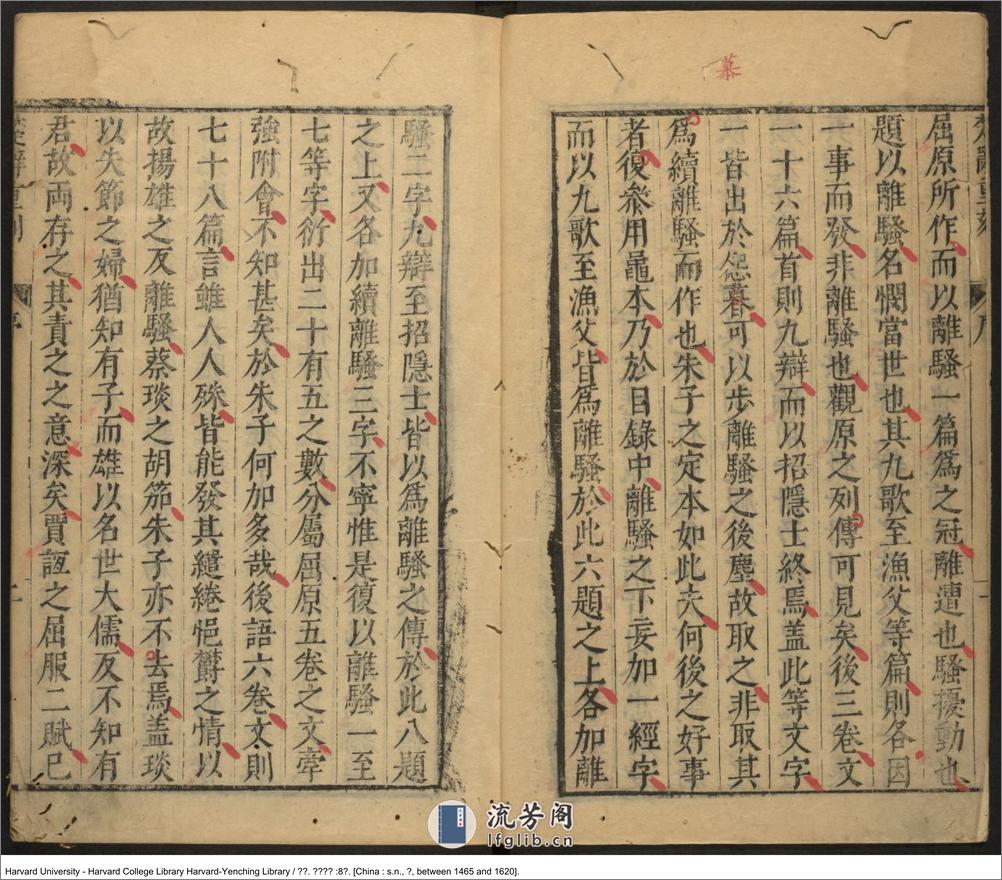 慕
屈原所作而以離騷一篇為之冠離遭也騷擾動也
題以離騷名憫當世也其九歌至漁父等篇則各因
一事而發非離騷也觀原之列傳可見矣後三卷文
一十六篇首則九辯而以招隱士終焉盖此等文字
一皆出於怨暮可以步離騷之後塵故取之非取其
為續離騷而作也朱子之定本如此夫何後之好事
者復叅用鼂本乃於目錄中離騷之下妄加一經字
而以九歌至漁父皆為離騷於此六題之上各加離
騷二字九辯至招隱士皆以為離騷之傳於此八題
之上又各加續離騷三字不寧惟是復以離騷一至
七等字衍出二十有五之數分屬屈原五卷之文牽
強附會不知甚矣於朱子何加多哉後語六卷文則
七十八篇言雖人人殊皆能發其繾綣悒欝之情以
故揚雄之反離騷蔡琰之胡笳朱子亦不去焉盖琰
以失節之婦猶知有子而雄以名世大儒反不知有
君故両存之其責之之意深矣賈誼之屈服二賦已
流芳阁
lfglib.cn
Harvard University - Harvard College Library Harvard-Yenching Library / ??. ???? :8?. [China : s.n., ?, between 1465 and 1620].